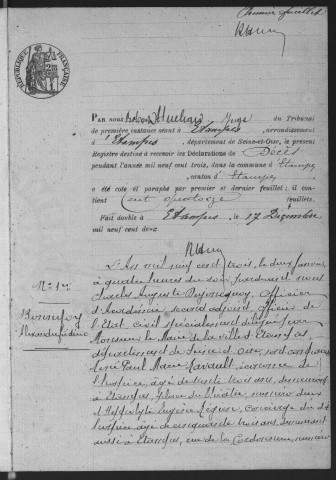 Premier feuillet
RÉPUBLIQUE FRANÇAISE
PAR NOUS Juge du Tribunal
de première instance séant à Etampes, arrondissement
d'Etampes, département de Seine-et-Oise, le présent
Registre destiné à recevoir les Déclarations de Décès
pendant l'année mil neuf cent trois, dans la commune d'Etampes
canton d'Etampes
a été coté et paraphé par premier et dernier feuillet; il con-
tient cent quatorze feuillets.
Fait double à Etampes, le 17 Décembre
mil neuf cent deux
N° 1er
Bonnefoy
Alexandre
L'An mil neuf cent trois, le deux janvier
à quatre heures du soir, pardevant nous
Charles Auguste, Officier
d'Académie, second adjoint, officier de
l'Etat civil spécialement délégué par
Monsieur le Maire de la ville d'Etampes,
département de Seine et Oise, sont comparus
René Paul Marie économe de
l'hospice, âgé de trente trois ans, demeurant
à Etampes, place du Théâtre, numéro deux
et Hippolyte Eugène concierge du dit
hospice âgé de cinquante trois ans, demeurant
aussi à Etampes, rue de la Cordonnerie, numéro